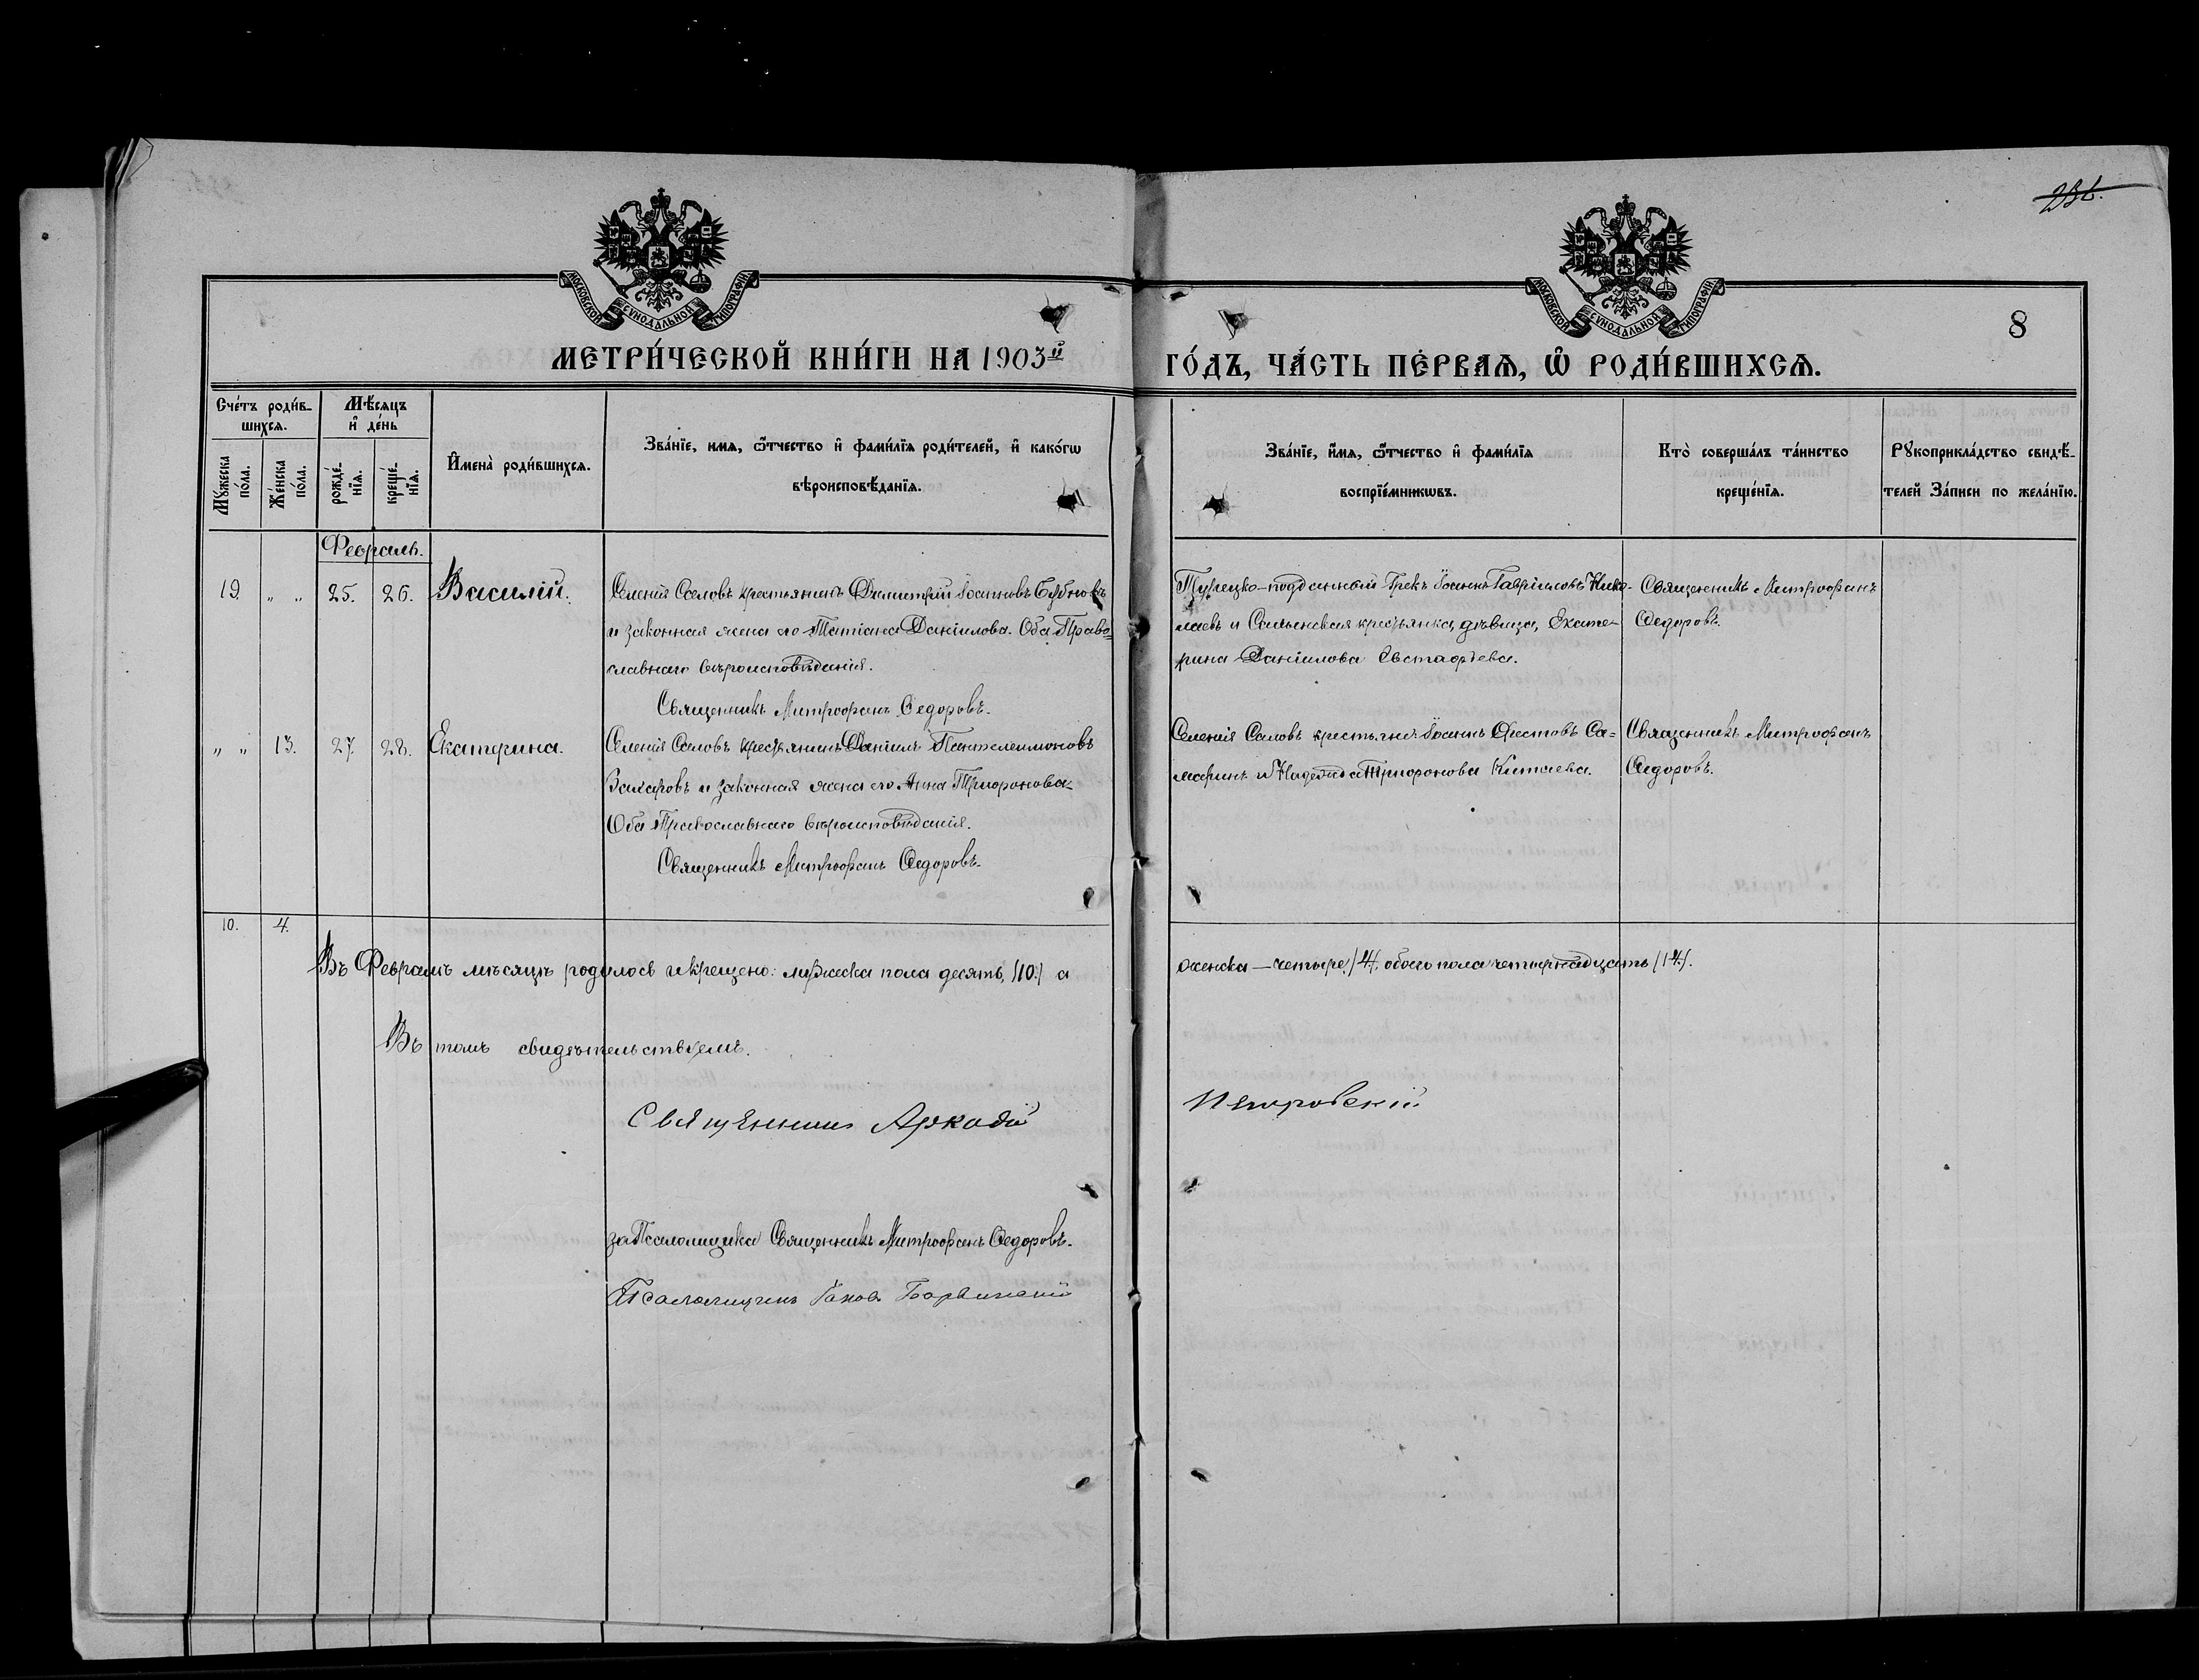 236.
МОСКОВСКОЙ СУНОДАЛЬНОЙ ТИПОГРАФІИ
МОСКОВСКОЙ СУНОДАЛЬНОЙ ТИПОГРАФІИ
8
МЕТРИ́ЧЕСКОЙ КНИ́ГИ НА 1903й ГО́ДЪ, ЧА́СТЬ ПЕ́РВАѦ, Ѡ РОДИ́ВШИХСѦ.
Сче́тъ роди́в-
шихсѧ.
Мꙋ́жеска
пола.
Же́нска
по́ла.
Мѣ́сѧцъ
и де́нь
рожде́-
нїѧ.
креще́-
нїѧ.
Имена̀ роди́вшихсѧ.
Зва́нїе, имѧ, ѿтчество и фами́лїѧ роди́телей, и како́гѡ
вѣроисповѣ́данїѧ.
Зва́нїе, и́мѧ, ѿтчество и фами́лїѧ
воспрїе́мникѡвъ.
Кто̀ соверша́лъ та́инство
креще́нїѧ.
Рꙋкоприкла́дство свидѣ́-
телей За́писи по жела́нїю.
Февраль.
19. „ „ 25. 26. Василій.
Селенія Саловъ крестьянинъ Димитрій Іоанновъ Бубновъ
и законная жена его Татіана Даніилова. Оба Право=
славнаго вѣроисповѣданія.
Священникъ Митрофанъ Ѳедоровъ.
Турецко-подданный Грекъ Іоаннъ Гавріиловъ Нико-
лаевъ и Сальенская крестьянка, дѣвица, Екате-
рина Даніилова Евстафьева.
Священникъ Митрофанъ
Ѳедоровъ.
„ „ 13. 27. 28. Екатерина.
Селенія Саловъ крестьянинъ Даніилъ Пантелеимоновъ
Захаровъ и законная жена его Анна Трифонова
Оба Православнаго вѣроисповѣданія.
Священникъ Митрофанъ Ѳедоровъ.
Селенія Саловъ крестьянинъ Іоаннъ Са=
маринъ и Надежда Трифонова Китаева.
Священникъ Митрофанъ
Ѳедоровъ.
10. 4.
Въ Февралѣ мѣсяцѣ родилось и крещено: мужеска пола десять, /10./ а женска — четыре /4/. обоего пола четырнадцать /14./.
Въ томъ свидѣтельствуемъ.
Священникъ Аркадій
за Псаломщика Священникъ Митрофанъ Ѳедоровъ.
Псаломщикъ